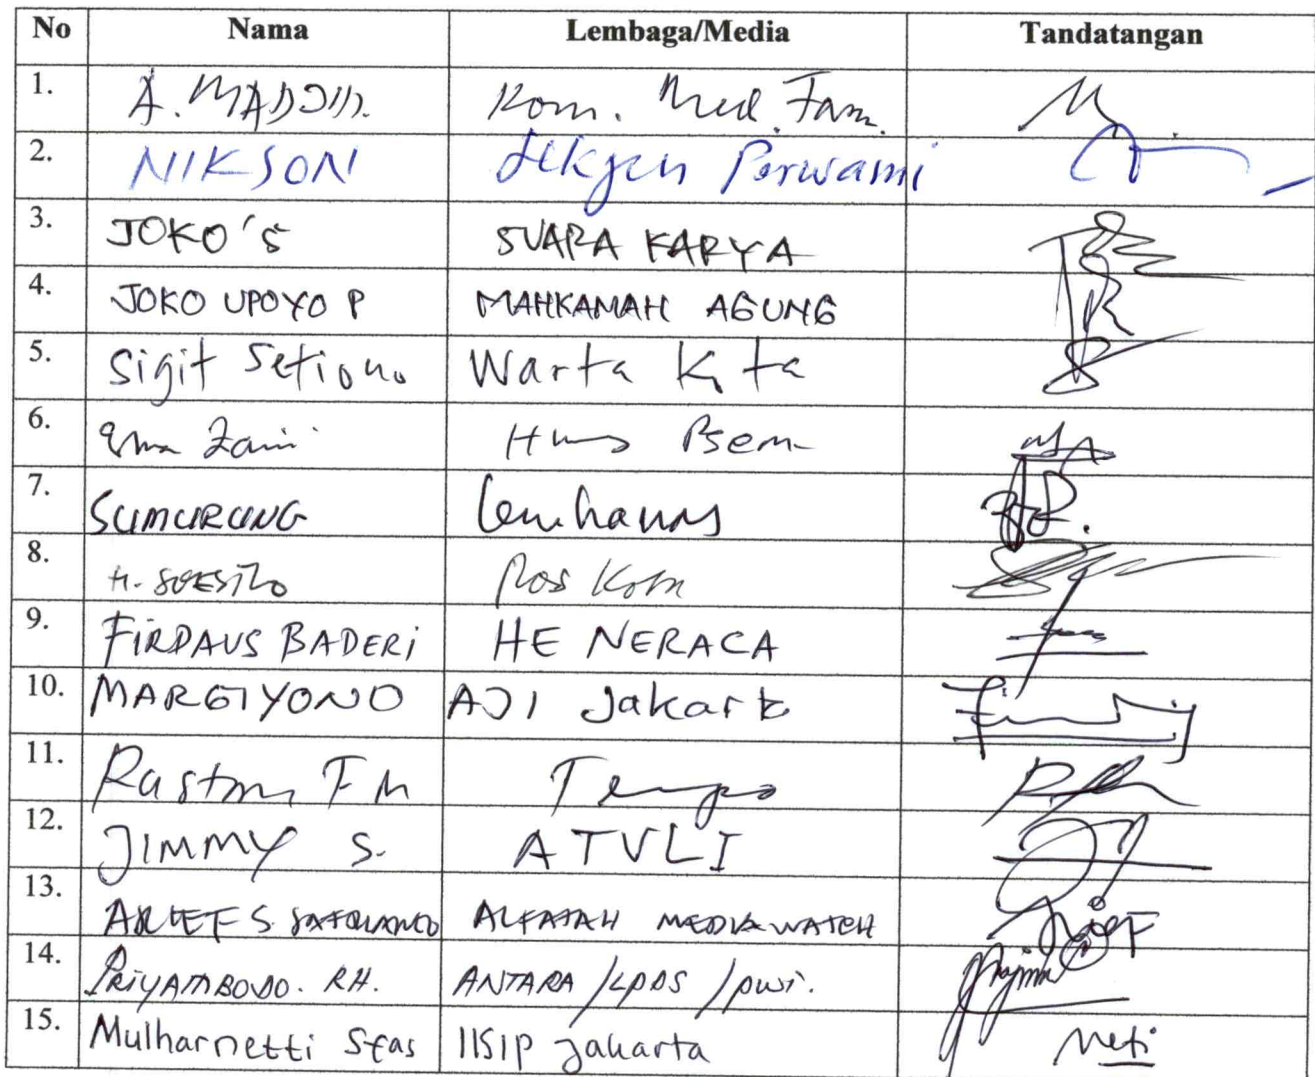 No Nama Lembaga/Media Tandatangan
1. A. MADJID. Kom. Med. Fam.
2. NIKSON Sekjen Perwami
3. JOKO'S SUARA KARYA
4. JOKO UPOYO P MAHKAMAH AGUNG
5. Sigit Setiono Warta Kita
6. Zaini
7. SUMURUNG Lemhannas
8. H. SOESILO Pos Kota
9. FIRDAUS BADERI HE NERACA
10. MARGIYONO AJI Jakart
11. F Tempo
12. JIMMY S. ATVLI
13. ARIEF S. ALFATAH MEDIA WATCH
14. PRIYAMBODO. RH. ANTARA /LPDS /pwi.
15. Mulharnetti Syas IISIP Jakarta Neti